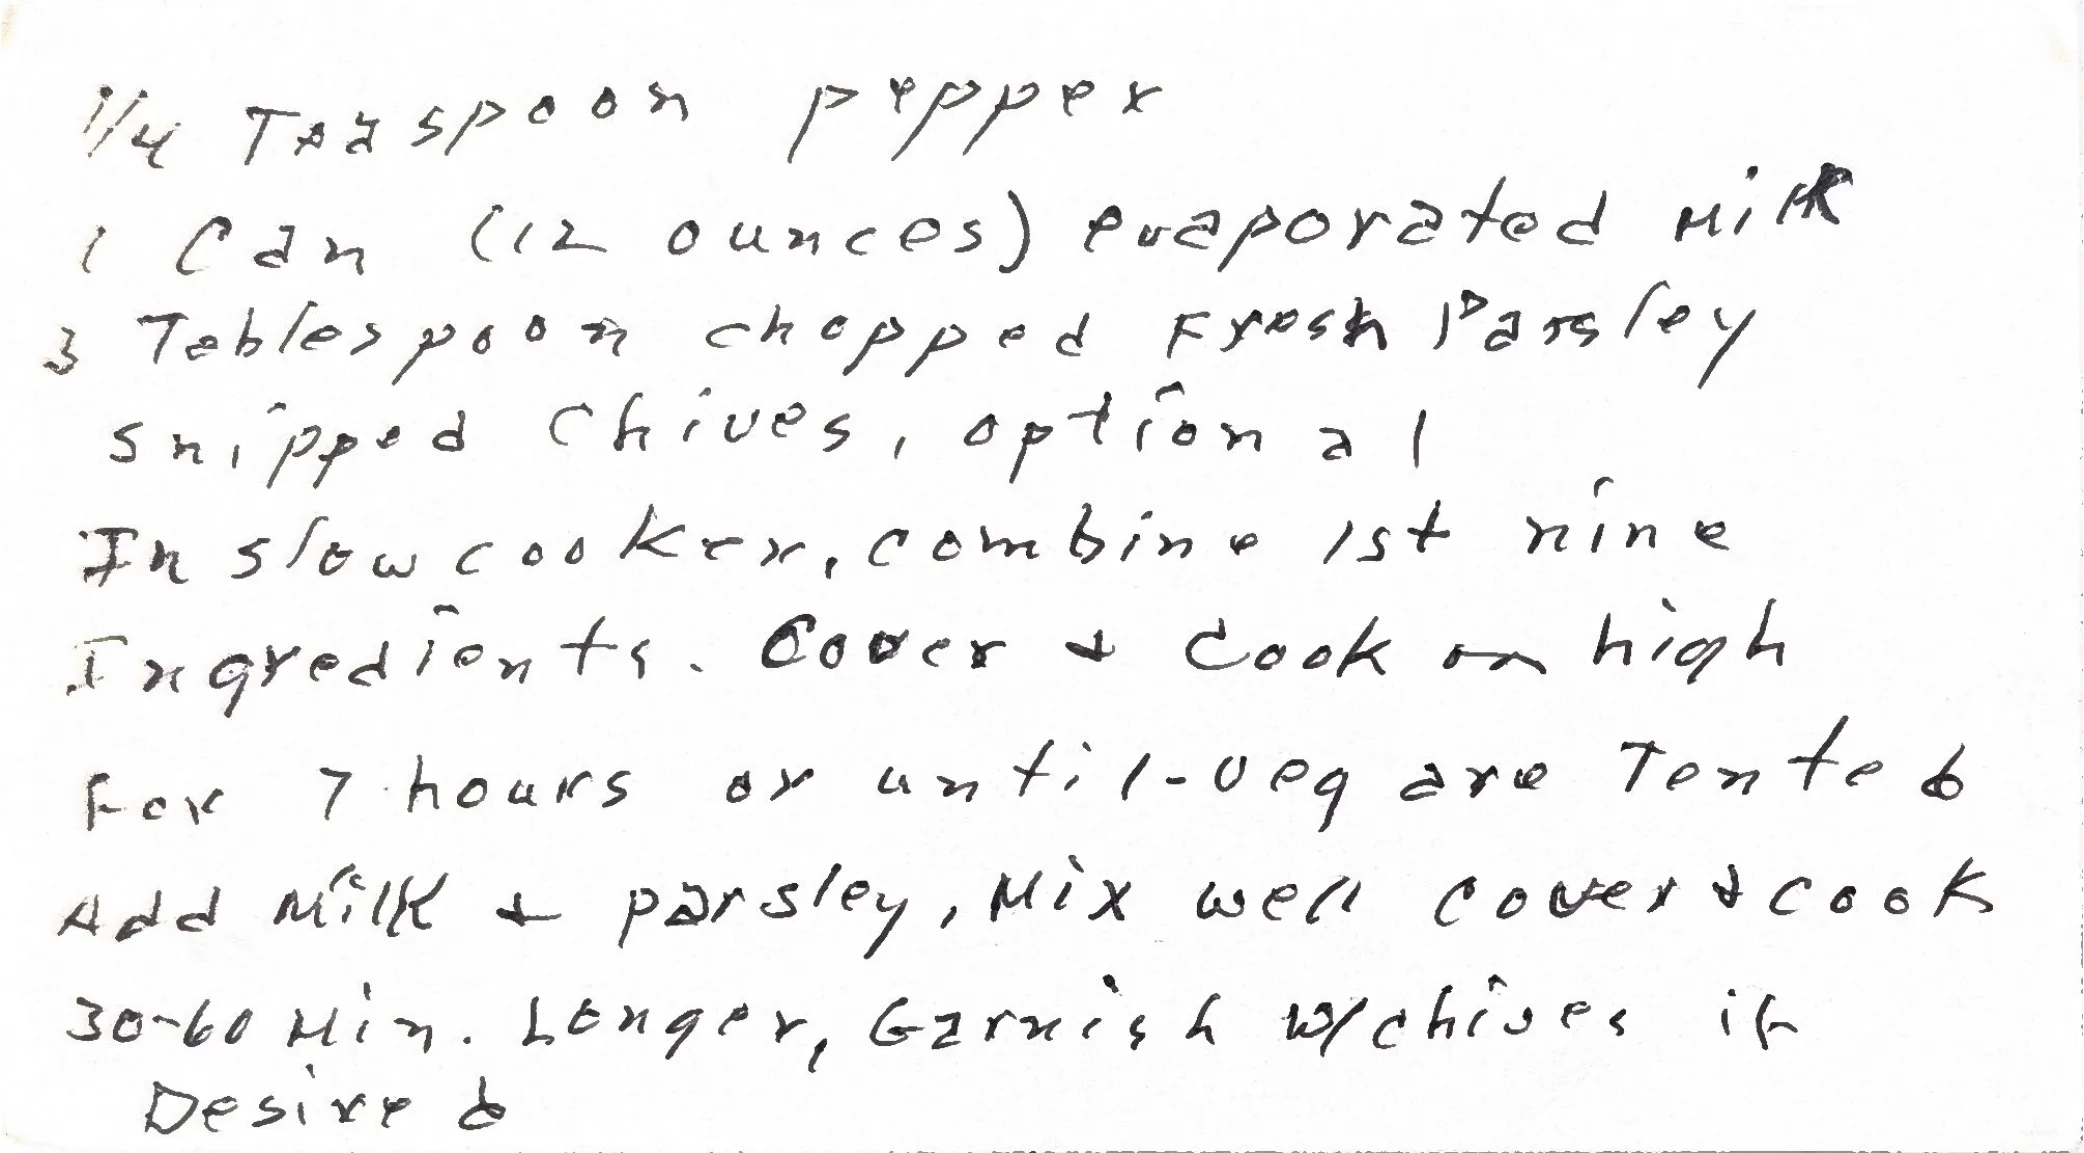 1/4 Teaspoon pepper
1 Can (12 ounces) evaporated Milk
3 Tablespoon chopped Fresh Parsley
snipped Chives, optional
In slow cooker, combine 1st nine
Ingredients. Cover & Cook on high
For 7 hours or until-veg are Tented
Add Milk & parsley, Mix well cover & cook
30-60 Min. Longer, Garnish w/chives if
Desired